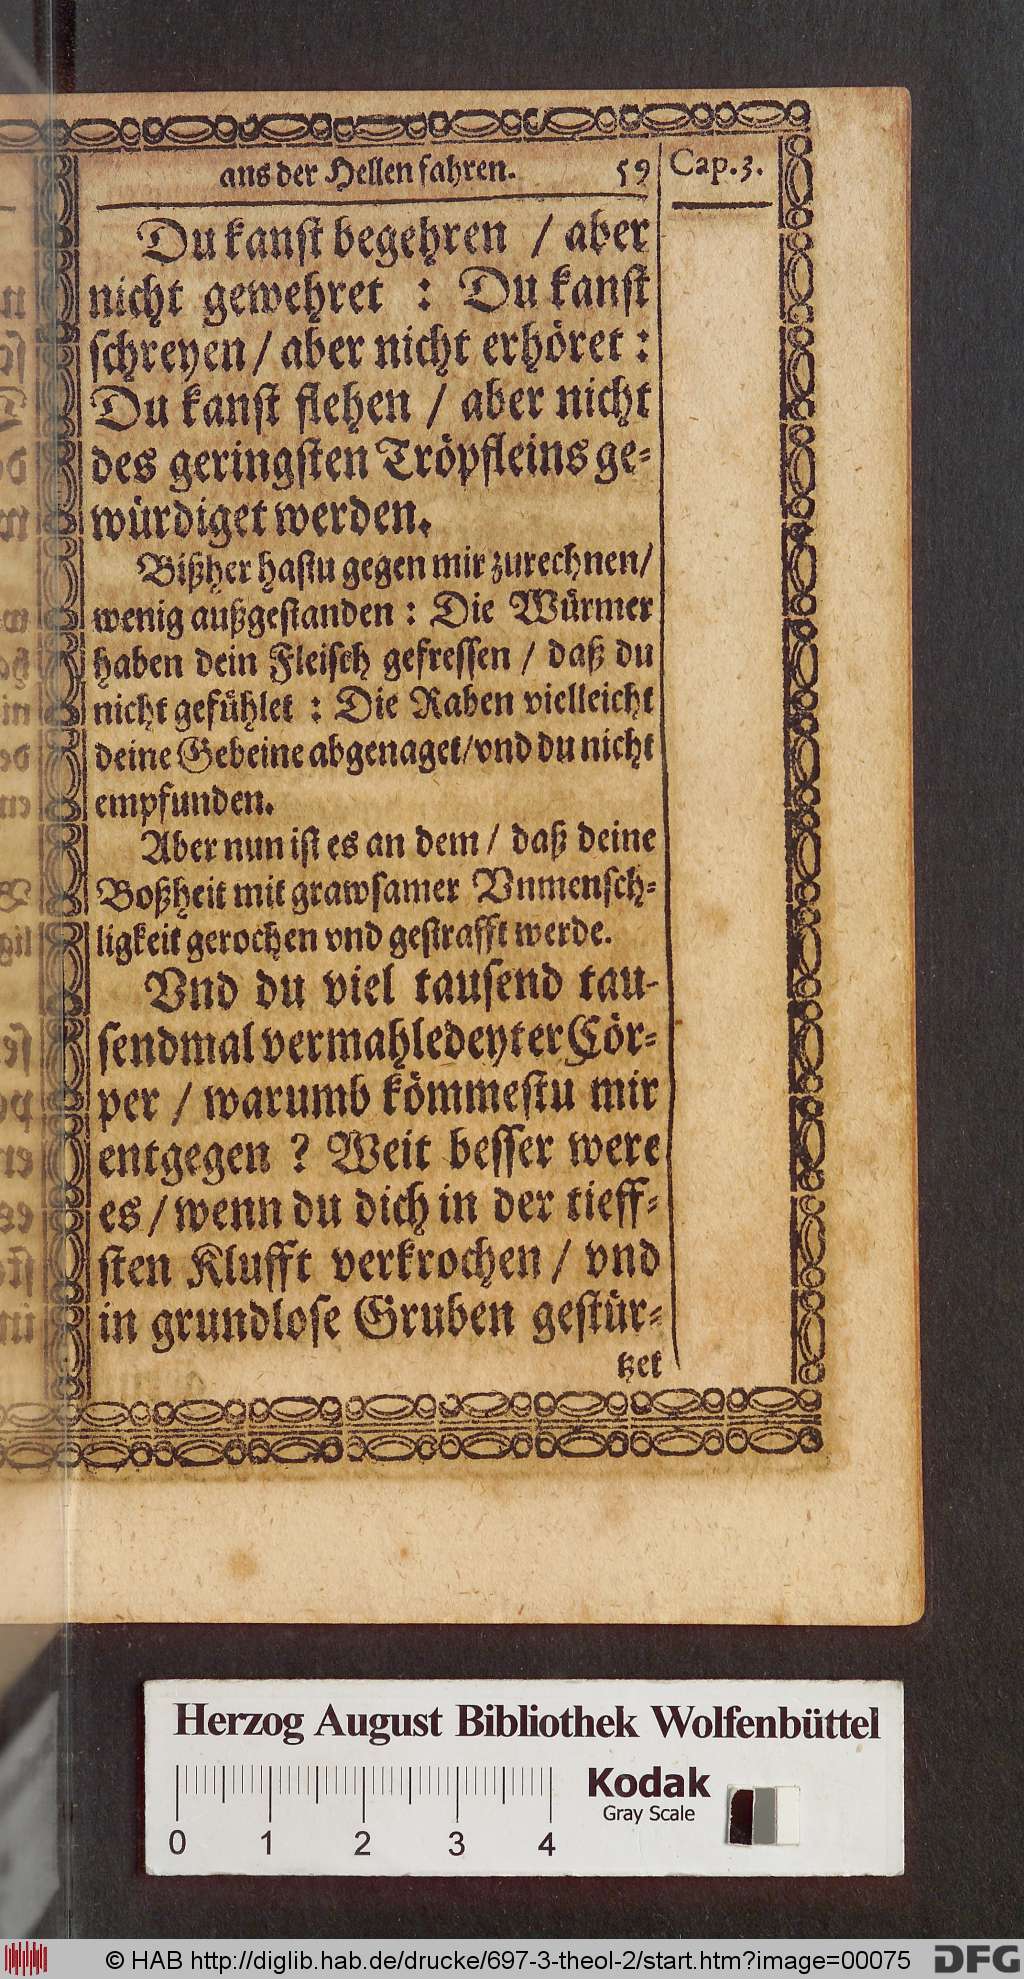 aus der Hellen fahren. 59 Cap. 3.
Du kanst begehren / aber
nicht gewehret : Du kanst
schreyen / aber nicht erhöret :
Du kanst flehen / aber nicht
des geringsten Tröpfleins ge-
würdiget werden.
Bißher hastu gegen mir zurechnen /
wenig außgestanden : Die Würmer
haben dein Fleisch gefressen / daß du
nicht gefühlet : Die Raben vielleicht
deine Gebeine abgenaget / vnd du nicht
empfunden.
Aber nun ist es an dem / daß deine
Boßheit mit grawsamer Vnmensch-
ligkeit gerochen vnd gestrafft werde.
Vnd du viel tausend tau-
sendmal vermahledeyter Cör-
per / warumb kömmestu mir
entgegen ? Weit besser were
es / wenn du dich in der tieff-
sten Klufft verkrochen / vnd
in grundlose Gruben gestür-
tzet
Herzog August Bibliothek Wolfenbüttel
Kodak
Gray Scale
0 1 2 3 4
© HAB http://diglib.hab.de/drucke/697-3-theol-2/start.htm?image=00075 DFG